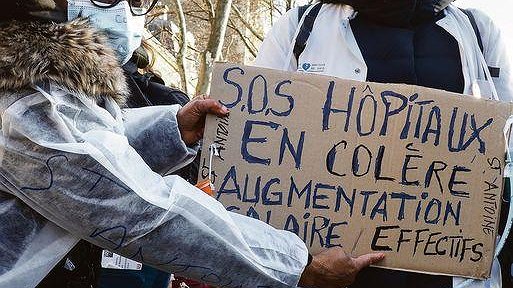 S.O.S HÔPITAUX
EN COLÈRE
AUGMENTATION
SALAIRE / EFFECTIFS
ST ANTOINE